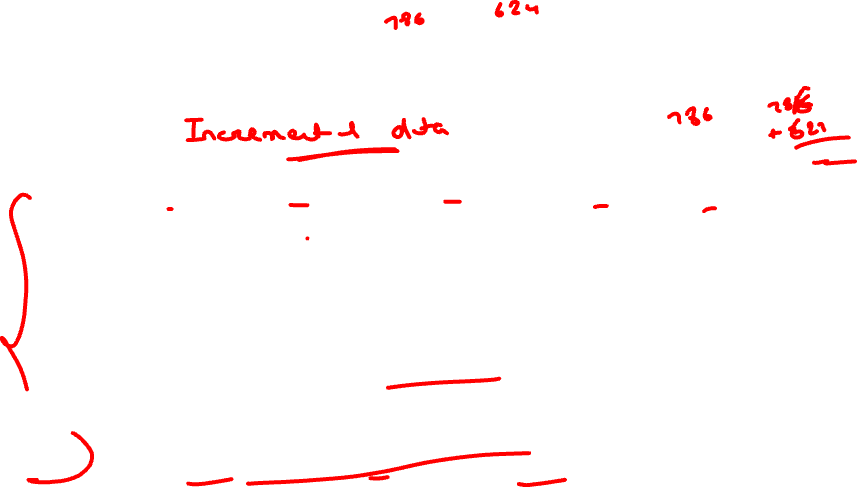 786 624
Incremental data 786 786
+ 621